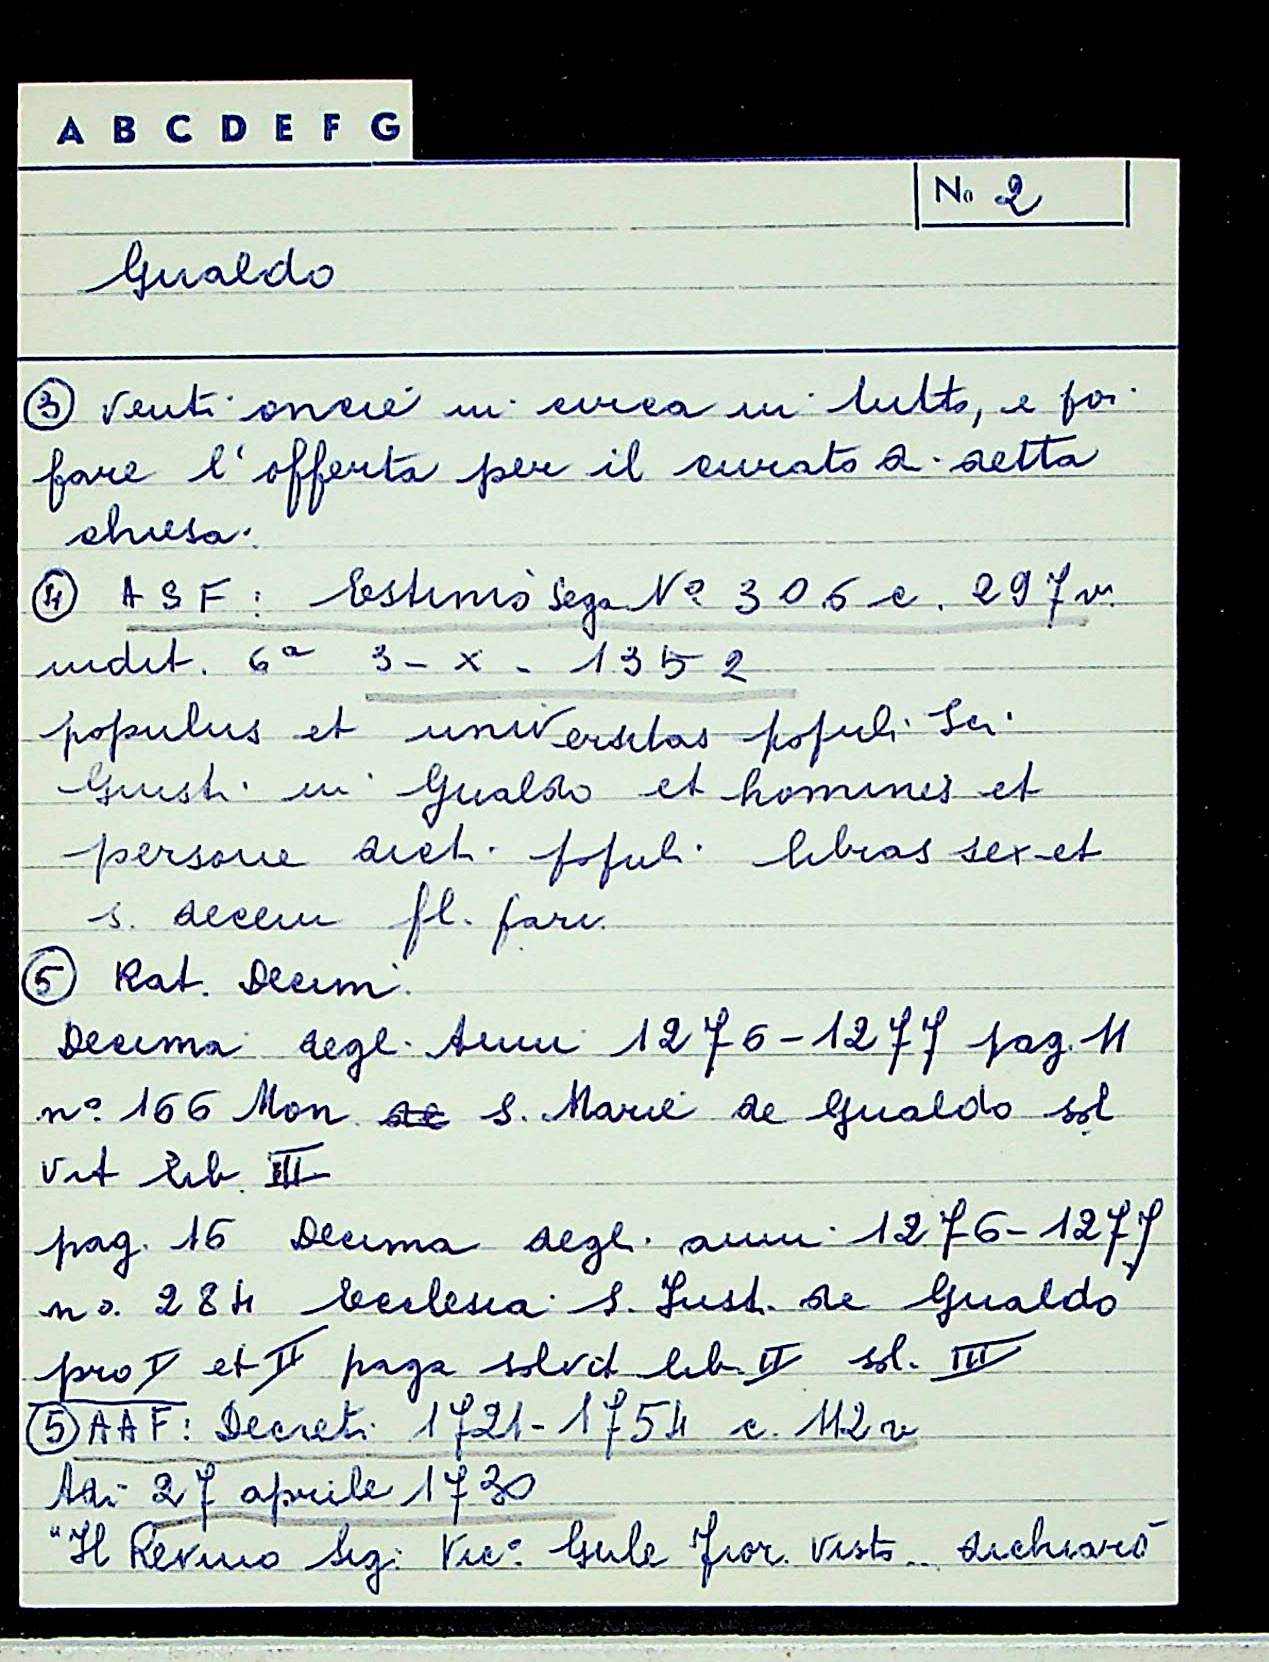 A B C D E F G
No 2
Gualdo
③ venti oncie in circa in tutto, e poi
fare l'offerta per il curato d. detta
chiesa.
④ ASF: Estimo Sega Nº 306 c. 297v.
indit. 6ª 3-X-1352
populus et universitas populi Sci
Giusti in Gualdo et homines et
persone dicti populi libras sex et
s. decem fl. parv.
⑤ Rat. Decim.
Decima degli Anni 1276-1277 pag. 11
nº 166 Mon de S. Marie de Gualdo sol
vit lib. III
pag. 16 Decima degli anni 1276-1277
no. 284 Ecclesia S. Just. de Gualdo
pro I et II paga solvit lib. II sol. III
⑤ AAF: Decreti 1721-1754 c. 112v
Adi 27 aprile 1730
"Il Revmo Sig: Vicº Gnle Fior. visto.. dichiarò